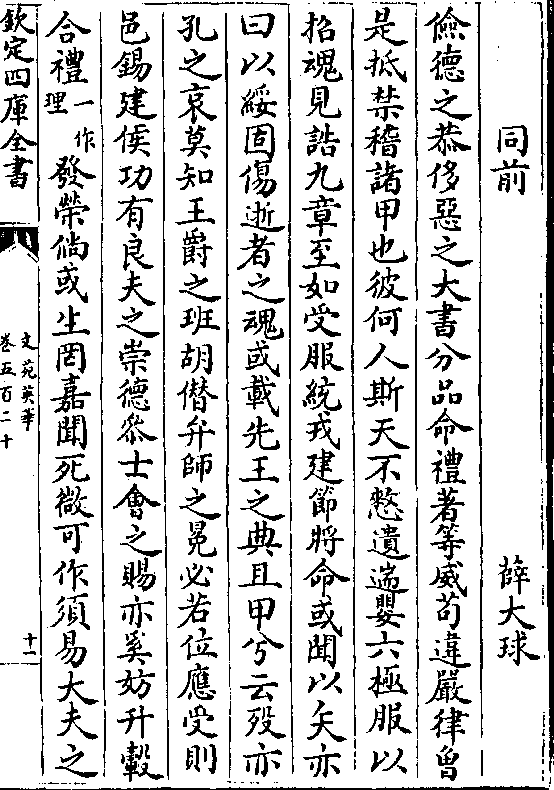 同前　薛大球
儉德之恭侈惡之大書分品命禮著等威苟違嚴律曾
是抵禁稽諸甲也彼何人斯天不憗遺遄嬰六極服以
招魂見誥九章至如受服統戎建節將命或聞以矢亦
曰以綏固傷逝者之魂或載先王之典且甲兮云歿亦
孔之哀莫知王爵之班胡僣弁師之冕必若位應受則
邑錫建侯功有良夫之崇德叅士會之賜亦奚妨升轂
合禮一作理發榮倘或生罔嘉聞死微可作須易大夫之
欽定四庫全書
文苑英華
卷五百二十
十一